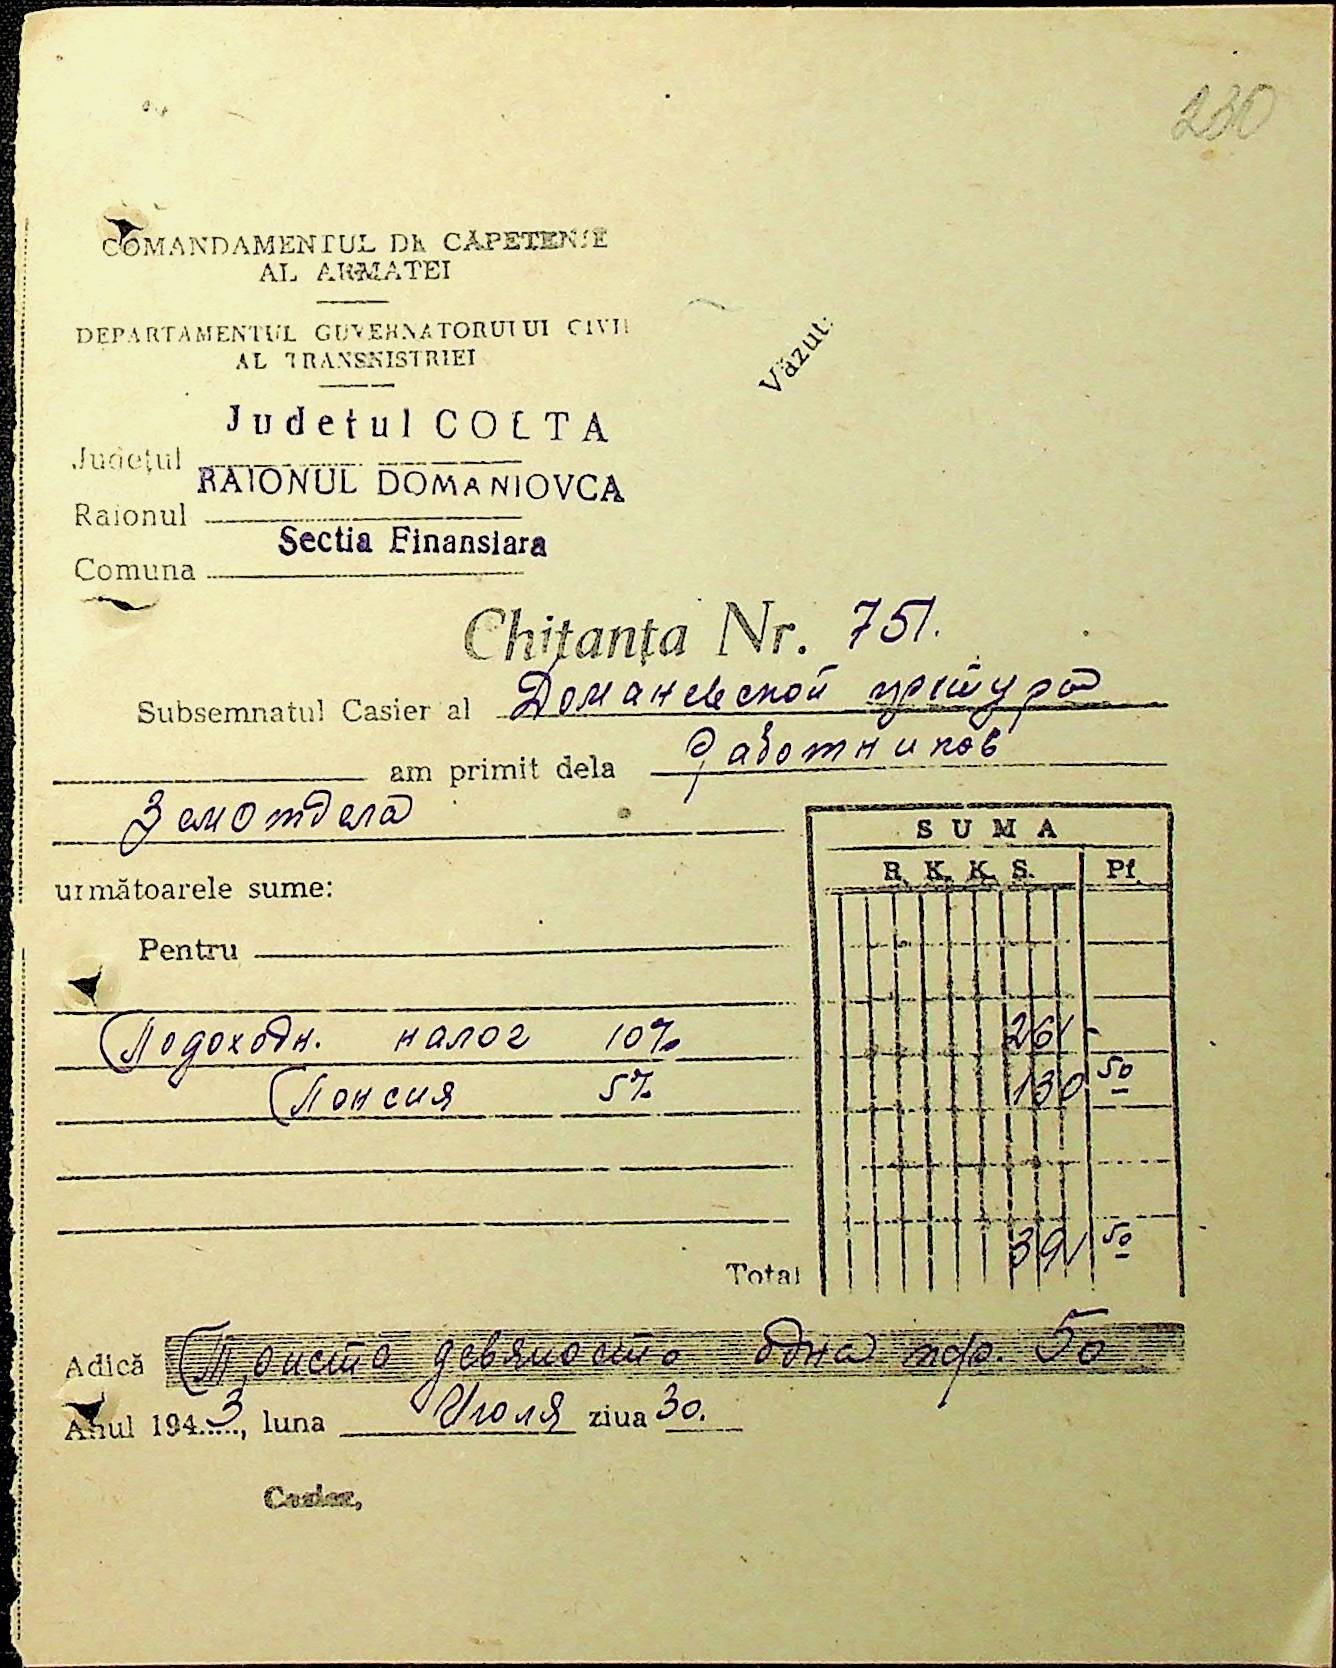 230
COMANDAMENTUL DE CAPETENIE
AL ARMATEI
DEPARTAMENTUL GUVERNATORUIUI CIVIL
AL TRANSNISTRIEI
Văzut:
Judetul COLTA
Județul
RAIONUL DOMANIOVCA
Raionul
Sectia Finansiara
Comuna
Chitanța Nr. 751.
Subsemnatul Casier al Доманевской претура
am primit dela Работников
Земотдела
următoarele sume:
SUMA
R. K. K. S. Pf.
Pentru
Подоходн. налог 10% 261 -
Понсия 5% 130 50
Total 391 50
Adică Триста девяносто одна пф. 50
Anul 1943, luna Июля ziua 30.
Casier,